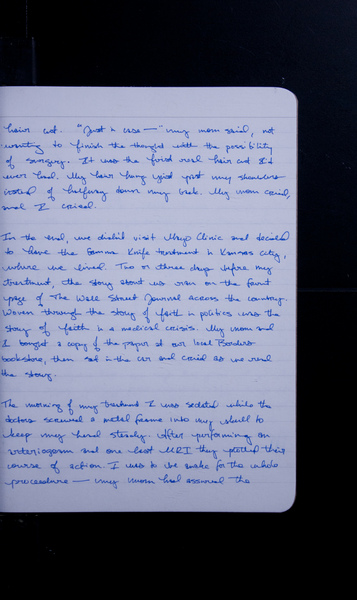 hair cut. "Just in case—" my mom said, not
wanting to finish the thought with the possibility
of surgery. It was the first real hair cut I'd
ever had. My hair hung just past my shoulders
instead of halfway down my back. My mom cried,
and I cried.
In the end, we didn't visit Mayo Clinic and decided
to have the Gamma Knife treatment in Kansas City,
where we lived. Two or three days before my
treatment, the story about us ran on the front
page of The Wall Street Journal across the country.
Woven through the story of faith in politics was the
story of faith in a medical crisis. My mom and
I bought a copy of the paper at our local Borders
bookstore, then sat in the car and cried as we read
the story.
The morning of my treatment I was sedated while the
doctors screwed a metal frame into my skull to
keep my head steady. After performing an
arteriogram and one last MRI they plotted their
course of action. I was to be awake for the whole
procedure — my mom had assured the